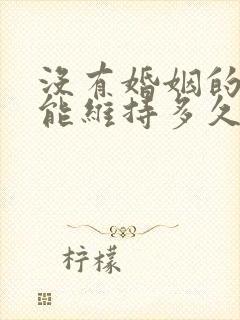 沒有婚姻的
能維持多久
柠檬